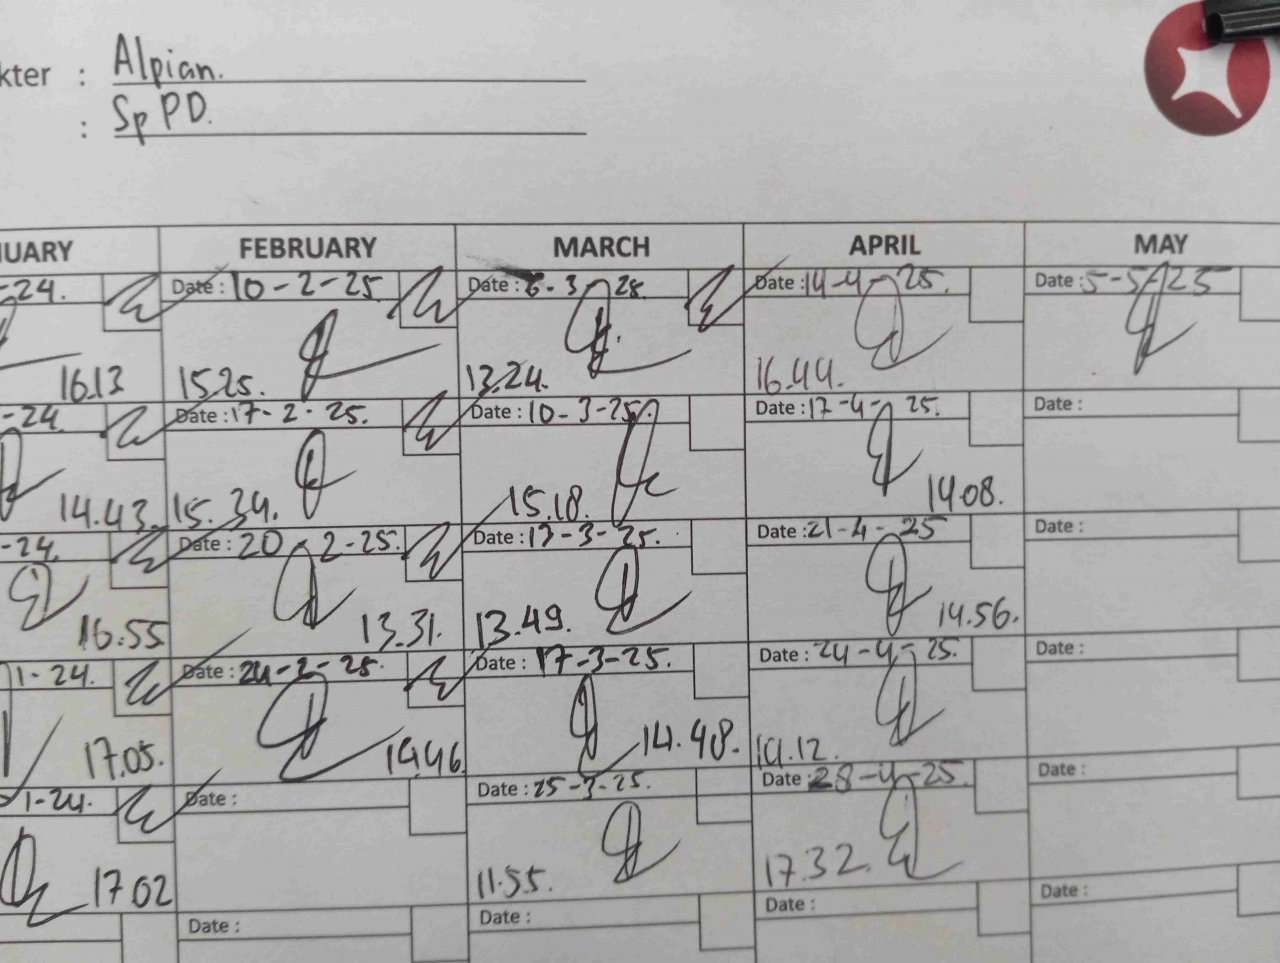 kter : Alpian.
: Sp PD.
UARY FEBRUARY MARCH APRIL MAY
-24. Date : 10-2-25 Date : 6-3 25. Date : 14-4-25. Date : 5-5-25
16.13 15.25. 13.24. 16.44.
-24 Date : 17-2-25. Date : 10-3-25. Date : 17-4-25. Date :
14.43. 15.34. 15.18. 14.08.
-24. Date : 20-2-25. Date : 13-3-25. Date : 21-4-25 Date :
16.55 13.31. 13.49. 14.56.
1-24. Date : 24-2-25. Date : 17-3-25. Date : 24-4-25. Date :
17.05. 14.46 14.48. 14.12.
1-24. Date : Date : 25-3-25. Date : 28-4-25. Date :
17.02 11.55. 17.32.
Date : Date : Date : Date :